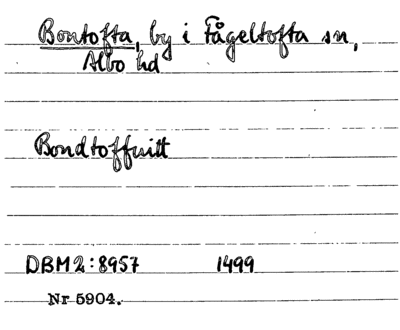 Bontofta, by i Fågeltofta sn,
Albo hd
Bondtoffuitt
DBM2:8957 1499
Nr 5904.